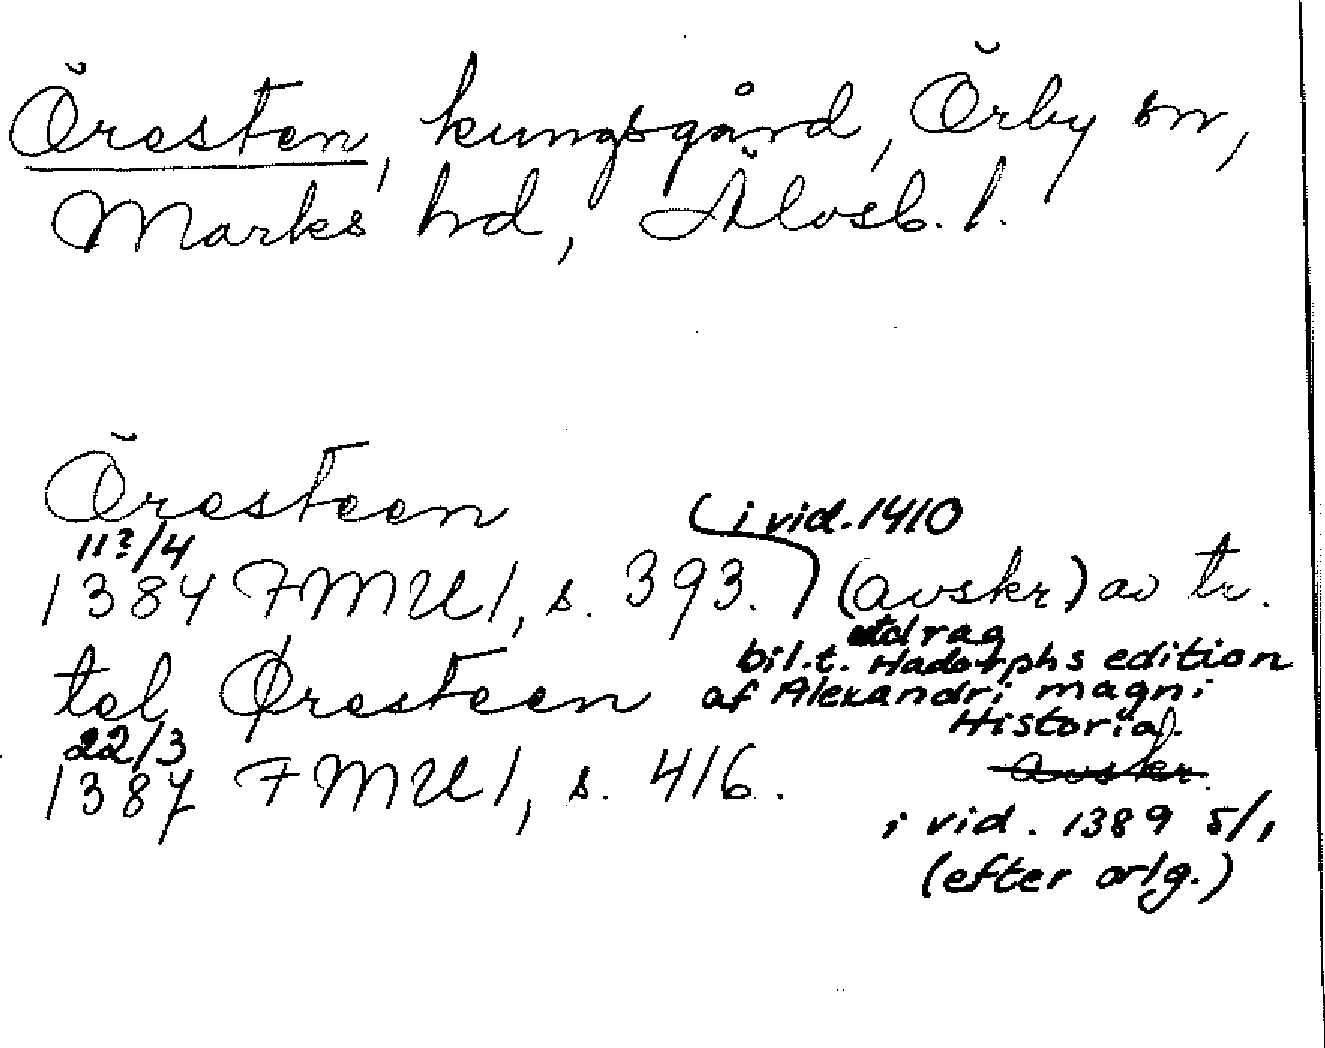 Öresten, kungsgård, Örby sn,
Marks hd, Älvsb. l.
Öresteen
11?/4 i vid. 1410
1384 FMU 1, s. 393. (avskr) av tr.
utdrag
bil. t. Hadorphs edition
tel Øresteen af Alexandri magni
Historia.
22/3 avskr.
1387 FMU 1, s. 416.
i vid. 1389 5/1
(efter orig.)